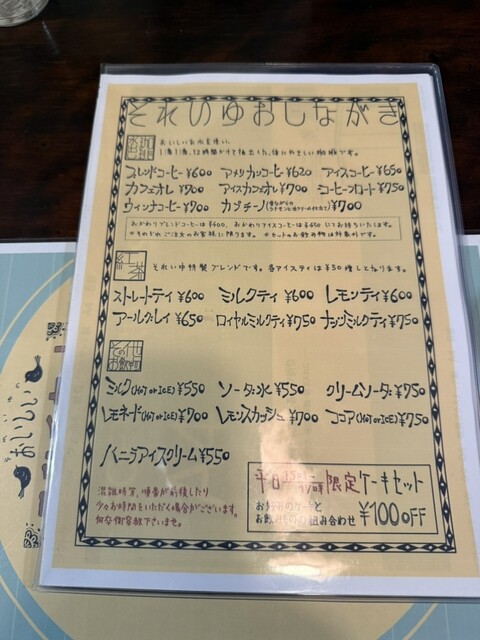 それいゆおしながき
水出し珈琲
おいしいお水を使い、
1滴1滴、12時間かけて抽出した、体にやさしい珈琲です。
ブレンドコーヒー¥600 アメリカンコーヒー¥620 アイスコーヒー¥650
カフェオレ¥700 アイスカフェオレ¥700 コーヒーフロート¥750
ウィンナコーヒー¥700 カプチーノ ¥700
おかわりブレンドコーヒーは¥400、おかわりアイスコーヒーは¥450にてお持ちいたします。
※そのつどご注文のお客様に限ります。 ※セットのお飲み物は対象外です。
紅茶
それいゆ特製ブレンドです。各アイスティは¥50増しとなります。
ストレートティ¥600 ミルクティ¥600 レモンティ¥600
アールグレイ¥650 ロイヤルミルクティ¥750 ナッツミルクティ¥750
その他お飲物
ミルク(HOT or ICE)¥550 ソーダ水¥550 クリームソーダ¥750
レモネード(HOT or ICE)¥700 レモンスカッシュ¥700 ココア(HOT or ICE)¥750
バニラアイスクリーム¥550
混雑時等、順番が前後したり
少々お時間をいただく場合がございます。
何卒御容赦下さいませ。
平日 限定ケーキセット
お好みのケーキと
お飲みものの組み合わせ ¥100OFF
おいしい